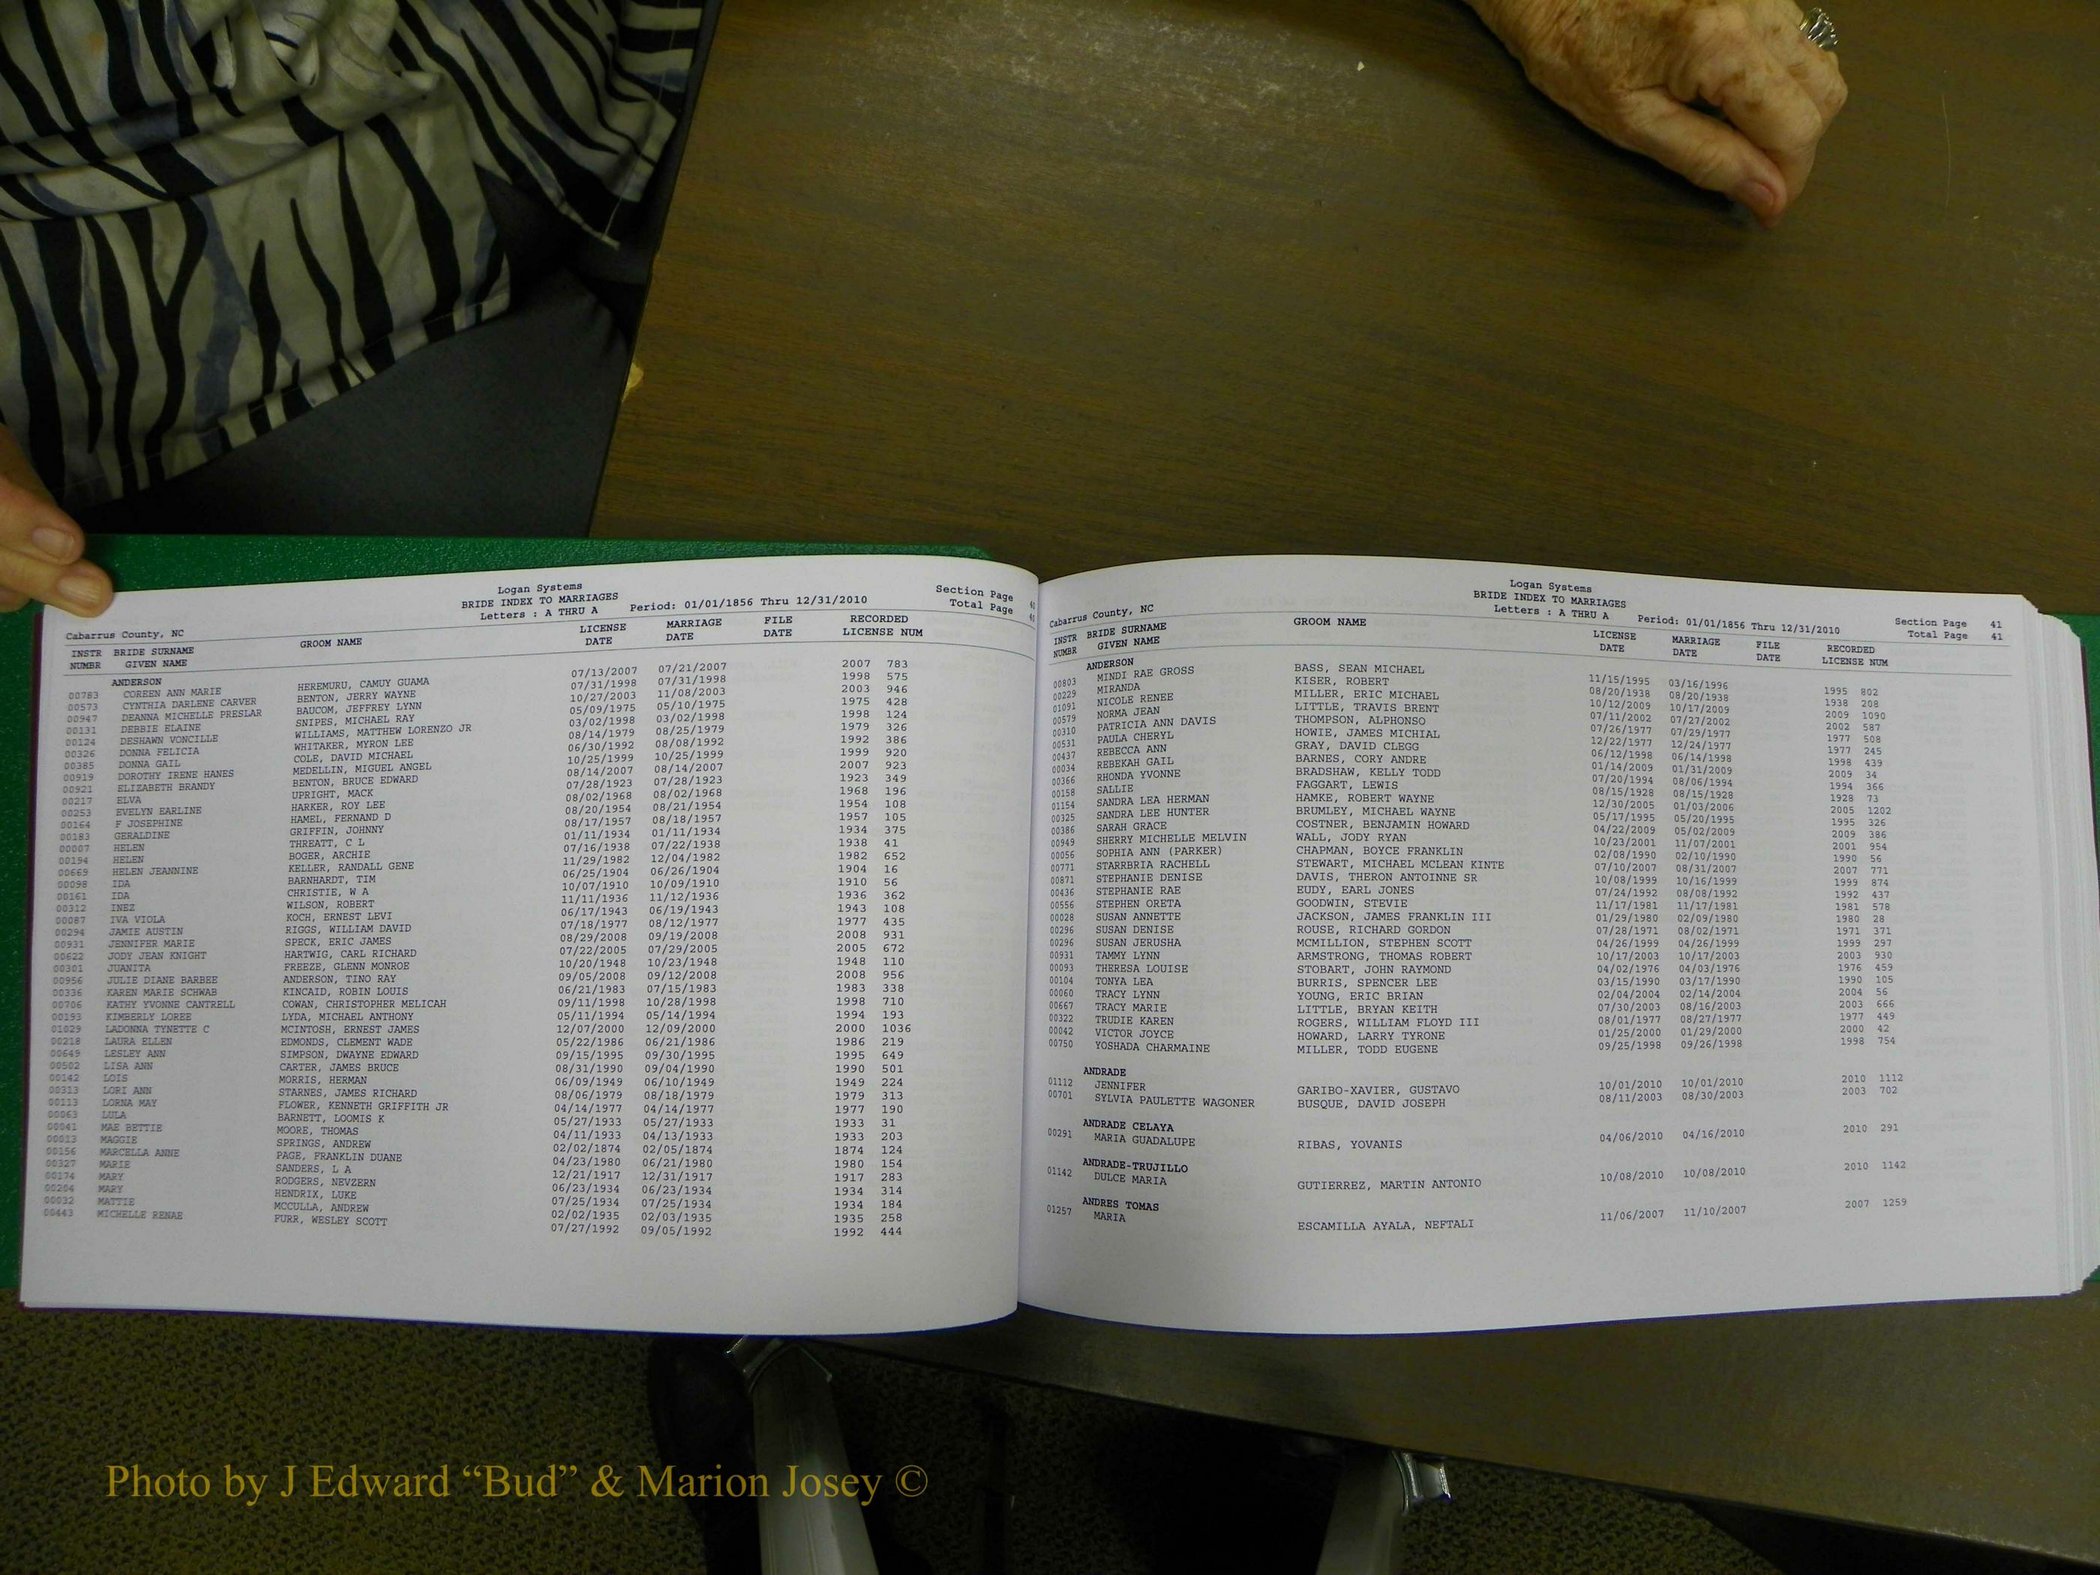 Logan Systems
BRIDE INDEX TO MARRIAGES
Cabarrus County, NC Letters : A THRU A Period: 01/01/1856 Thru 12/31/2010 Section Page 40
Total Page 40
INSTR BRIDE SURNAME GROOM NAME LICENSE MARRIAGE FILE RECORDED
NUMBR GIVEN NAME DATE DATE DATE LICENSE NUM
ANDERSON
00783 COREEN ANN MARIE HEREMURU, CAMUY GUAMA 07/13/2007 07/21/2007 2007 783
00573 CYNTHIA DARLENE CARVER BENTON, JERRY WAYNE 07/31/1998 07/31/1998 1998 575
00947 DEANNA MICHELLE PRESLAR BAUCOM, JEFFREY LYNN 10/27/2003 11/08/2003 2003 946
00131 DEBBIE ELAINE SNIPES, MICHAEL RAY 05/09/1975 05/10/1975 1975 428
00124 DESHAWN VONCILLE WILLIAMS, MATTHEW LORENZO JR 03/02/1998 03/02/1998 1998 124
00326 DONNA FELICIA WHITAKER, MYRON LEE 08/14/1979 08/25/1979 1979 326
00385 DONNA GAIL COLE, DAVID MICHAEL 06/30/1992 08/08/1992 1992 386
00919 DOROTHY IRENE HANES MEDELLIN, MIGUEL ANGEL 10/25/1999 10/25/1999 1999 920
00921 ELIZABETH BRANDY BENTON, BRUCE EDWARD 08/14/2007 08/14/2007 2007 923
00217 ELVA UPRIGHT, MACK 07/28/1923 07/28/1923 1923 349
00253 EVELYN EARLINE HARKER, ROY LEE 08/02/1968 08/02/1968 1968 196
00164 F JOSEPHINE HAMEL, FERNAND D 08/20/1954 08/21/1954 1954 108
00183 GERALDINE GRIFFIN, JOHNNY 08/17/1957 08/18/1957 1957 105
00007 HELEN THREATT, C L 01/11/1934 01/11/1934 1934 375
00194 HELEN BOGER, ARCHIE 07/16/1938 07/22/1938 1938 41
00669 HELEN JEANNINE KELLER, RANDALL GENE 11/29/1982 12/04/1982 1982 652
00098 IDA BARNHARDT, TIM 06/25/1904 06/26/1904 1904 16
00161 IDA CHRISTIE, W A 10/07/1910 10/09/1910 1910 56
00312 INEZ WILSON, ROBERT 11/11/1936 11/12/1936 1936 362
00087 IVA VIOLA KOCH, ERNEST LEVI 06/17/1943 06/19/1943 1943 108
00294 JAMIE AUSTIN RIGGS, WILLIAM DAVID 07/18/1977 08/12/1977 1977 435
00931 JENNIFER MARIE SPECK, ERIC JAMES 08/29/2008 09/19/2008 2008 931
00622 JODY JEAN KNIGHT HARTWIG, CARL RICHARD 07/22/2005 07/29/2005 2005 672
00301 JUANITA FREEZE, GLENN MONROE 10/20/1948 10/23/1948 1948 110
00956 JULIE DIANE BARBEE ANDERSON, TINO RAY 09/05/2008 09/12/2008 2008 956
00336 KAREN MARIE SCHWAB KINCAID, ROBIN LOUIS 06/21/1983 07/15/1983 1983 338
00706 KATHY YVONNE CANTRELL COWAN, CHRISTOPHER MELICAH 09/11/1998 10/28/1998 1998 710
00193 KIMBERLY LOREE LYDA, MICHAEL ANTHONY 05/11/1994 05/14/1994 1994 193
01029 LADONNA TYNETTE C MCINTOSH, ERNEST JAMES 12/07/2000 12/09/2000 2000 1036
00218 LAURA ELLEN EDMONDS, CLEMENT WADE 05/22/1986 06/21/1986 1986 219
00649 LESLEY ANN SIMPSON, DWAYNE EDWARD 09/15/1995 09/30/1995 1995 649
00502 LISA ANN CARTER, JAMES BRUCE 08/31/1990 09/04/1990 1990 501
00142 LOIS MORRIS, HERMAN 06/09/1949 06/10/1949 1949 224
00313 LORI ANN STARNES, JAMES RICHARD 08/06/1979 08/18/1979 1979 313
00113 LORNA MAY FLOWER, KENNETH GRIFFITH JR 04/14/1977 04/14/1977 1977 190
00063 LULA BARNETT, LOOMIS K 05/27/1933 05/27/1933 1933 31
00041 MAE BETTIE MOORE, THOMAS 04/11/1933 04/13/1933 1933 203
00013 MAGGIE SPRINGS, ANDREW 02/02/1874 02/05/1874 1874 124
00156 MARCELLA ANNE PAGE, FRANKLIN DUANE 04/23/1980 06/21/1980 1980 154
00327 MARIE SANDERS, L A 12/21/1917 12/31/1917 1917 283
00174 MARY RODGERS, NEVZERN 06/23/1934 06/23/1934 1934 314
00204 MARY HENDRIX, LUKE 07/25/1934 07/25/1934 1934 184
00032 MATTIE MCCULLA, ANDREW 02/02/1935 02/03/1935 1935 258
00443 MICHELLE RENAE FURR, WESLEY SCOTT 07/27/1992 09/05/1992 1992 444
Logan Systems
BRIDE INDEX TO MARRIAGES
Cabarrus County, NC Letters : A THRU A Period: 01/01/1856 Thru 12/31/2010 Section Page 41
Total Page 41
INSTR BRIDE SURNAME GROOM NAME LICENSE MARRIAGE FILE RECORDED
NUMBR GIVEN NAME DATE DATE DATE LICENSE NUM
ANDERSON
00803 MINDI RAE GROSS BASS, SEAN MICHAEL 11/15/1995 03/16/1996 1995 802
00229 MIRANDA KISER, ROBERT 08/20/1938 08/20/1938 1938 208
01091 NICOLE RENEE MILLER, ERIC MICHAEL 10/12/2009 10/17/2009 2009 1090
00579 NORMA JEAN LITTLE, TRAVIS BRENT 07/11/2002 07/27/2002 2002 587
00310 PATRICIA ANN DAVIS THOMPSON, ALPHONSO 07/26/1977 07/29/1977 1977 508
00531 PAULA CHERYL HOWIE, JAMES MICHIAL 12/22/1977 12/24/1977 1977 245
00437 REBECCA ANN GRAY, DAVID CLEGG 06/12/1998 06/14/1998 1998 439
00034 REBEKAH GAIL BARNES, CORY ANDRE 01/14/2009 01/31/2009 2009 34
00366 RHONDA YVONNE BRADSHAW, KELLY TODD 07/20/1994 08/06/1994 1994 366
00158 SALLIE FAGGART, LEWIS 08/15/1928 08/15/1928 1928 73
01154 SANDRA LEA HERMAN HAMKE, ROBERT WAYNE 12/30/2005 01/03/2006 2005 1202
00325 SANDRA LEE HUNTER BRUMLEY, MICHAEL WAYNE 05/17/1995 05/20/1995 1995 326
00386 SARAH GRACE COSTNER, BENJAMIN HOWARD 04/22/2009 05/02/2009 2009 386
00949 SHERRY MICHELLE MELVIN WALL, JODY RYAN 10/23/2001 11/07/2001 2001 954
00056 SOPHIA ANN (PARKER) CHAPMAN, BOYCE FRANKLIN 02/08/1990 02/10/1990 1990 56
00771 STARRBRIA RACHELL STEWART, MICHAEL MCLEAN KINTE 07/10/2007 08/31/2007 2007 771
00871 STEPHANIE DENISE DAVIS, THERON ANTOINNE SR 10/08/1999 10/16/1999 1999 874
00436 STEPHANIE RAE EUDY, EARL JONES 07/24/1992 08/08/1992 1992 437
00556 STEPHEN ORETA GOODWIN, STEVIE 11/17/1981 11/17/1981 1981 578
00028 SUSAN ANNETTE JACKSON, JAMES FRANKLIN III 01/29/1980 02/09/1980 1980 28
00296 SUSAN DENISE ROUSE, RICHARD GORDON 07/28/1971 08/02/1971 1971 371
00296 SUSAN JERUSHA MCMILLION, STEPHEN SCOTT 04/26/1999 04/26/1999 1999 297
00931 TAMMY LYNN ARMSTRONG, THOMAS ROBERT 10/17/2003 10/17/2003 2003 930
00093 THERESA LOUISE STOBART, JOHN RAYMOND 04/02/1976 04/03/1976 1976 459
00104 TONYA LEA BURRIS, SPENCER LEE 03/15/1990 03/17/1990 1990 105
00060 TRACY LYNN YOUNG, ERIC BRIAN 02/04/2004 02/14/2004 2004 56
00667 TRACY MARIE LITTLE, BRYAN KEITH 07/30/2003 08/16/2003 2003 666
00322 TRUDIE KAREN ROGERS, WILLIAM FLOYD III 08/01/1977 08/27/1977 1977 449
00042 VICTOR JOYCE HOWARD, LARRY TYRONE 01/25/2000 01/29/2000 2000 42
00750 YOSHADA CHARMAINE MILLER, TODD EUGENE 09/25/1998 09/26/1998 1998 754
ANDRADE
01112 JENNIFER GARIBO-XAVIER, GUSTAVO 10/01/2010 10/01/2010 2010 1112
00701 SYLVIA PAULETTE WAGONER BUSQUE, DAVID JOSEPH 08/11/2003 08/30/2003 2003 702
ANDRADE CELAYA
00291 MARIA GUADALUPE RIBAS, YOVANIS 04/06/2010 04/16/2010 2010 291
ANDRADE-TRUJILLO
01142 DULCE MARIA GUTIERREZ, MARTIN ANTONIO 10/08/2010 10/08/2010 2010 1142
ANDRES TOMAS
01257 MARIA ESCAMILLA AYALA, NEFTALI 11/06/2007 11/10/2007 2007 1259
Photo by J Edward “Bud” & Marion Josey ©